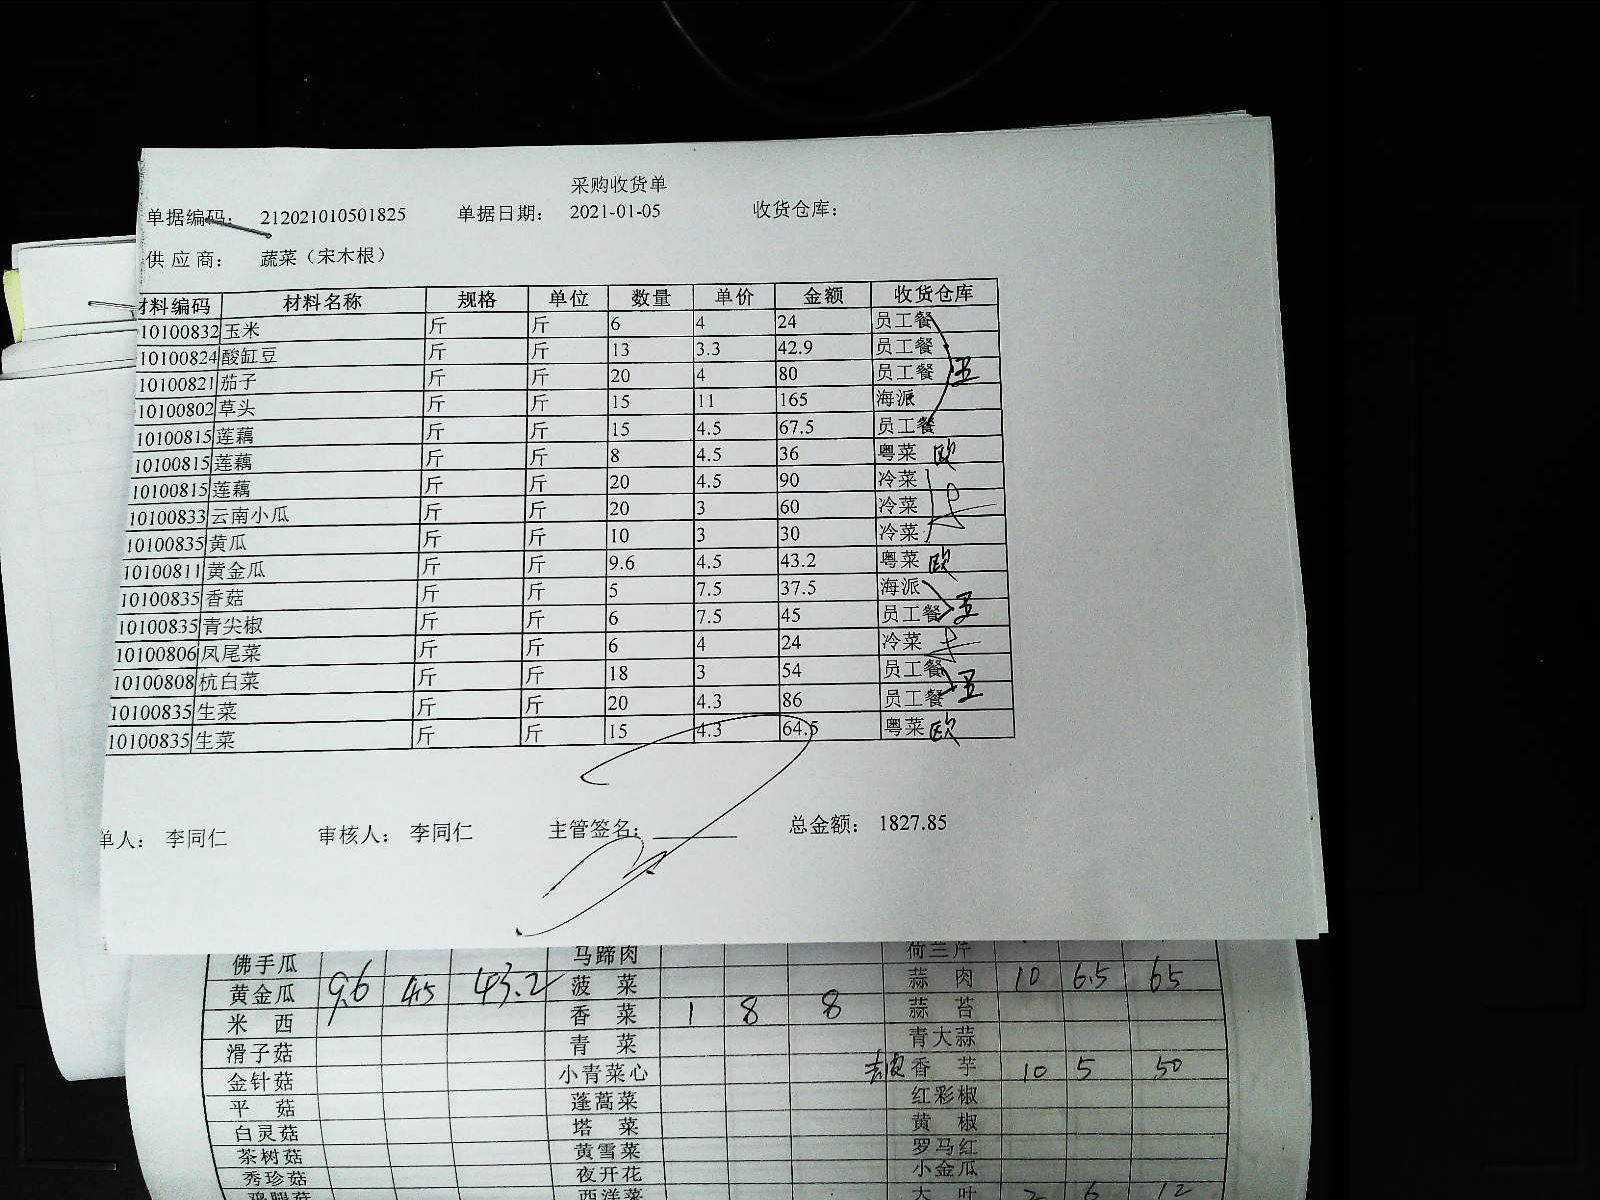 采购收货单
单据编码： 212021010501825 单据日期： 2021-01-05 收货仓库：
供应商： 蔬菜（宋木根）
材料编码 材料名称 规格 单位 数量 单价 金额 收货仓库
10100832 玉米 斤 斤 6 4 24 员工餐
10100824 酸缸豆 斤 斤 13 3.3 42.9 员工餐
10100821 茄子 斤 斤 20 4 80 员工餐
10100802 草头 斤 斤 15 11 165 海派
10100815 莲藕 斤 斤 15 4.5 67.5 员工餐
10100815 莲藕 斤 斤 8 4.5 36 粤菜 欧
10100815 莲藕 斤 斤 20 4.5 90 冷菜
10100833 云南小瓜 斤 斤 20 3 60 冷菜
10100835 黄瓜 斤 斤 10 3 30 冷菜
10100811 黄金瓜 斤 斤 9.6 4.5 43.2 粤菜 欧
10100835 香菇 斤 斤 5 7.5 37.5 海派
10100835 青尖椒 斤 斤 6 7.5 45 员工餐
10100806 凤尾菜 斤 斤 6 4 24 冷菜
10100808 杭白菜 斤 斤 18 3 54 员工餐
10100835 生菜 斤 斤 20 4.3 86 员工餐
10100835 生菜 斤 斤 15 4.3 64.5 粤菜 欧
单人： 李同仁 审核人： 李同仁 主管签名： 总金额： 1827.85
佛手瓜 马蹄肉 荷兰芹
黄金瓜 9.6 4.5 43.2 菠菜 蒜肉 10 6.5 65
米西 香菜 1 8 8 蒜苔
滑子菇 青菜 青大蒜
金针菇 小青菜心 去皮 香芋 10 5 50
平菇 蓬蒿菜 红彩椒
白灵菇 塔菜 黄椒
茶树菇 黄雪菜 罗马红
秀珍菇 夜开花 小金瓜
鸡腿菇 西洋菜 大叶 2 6 12